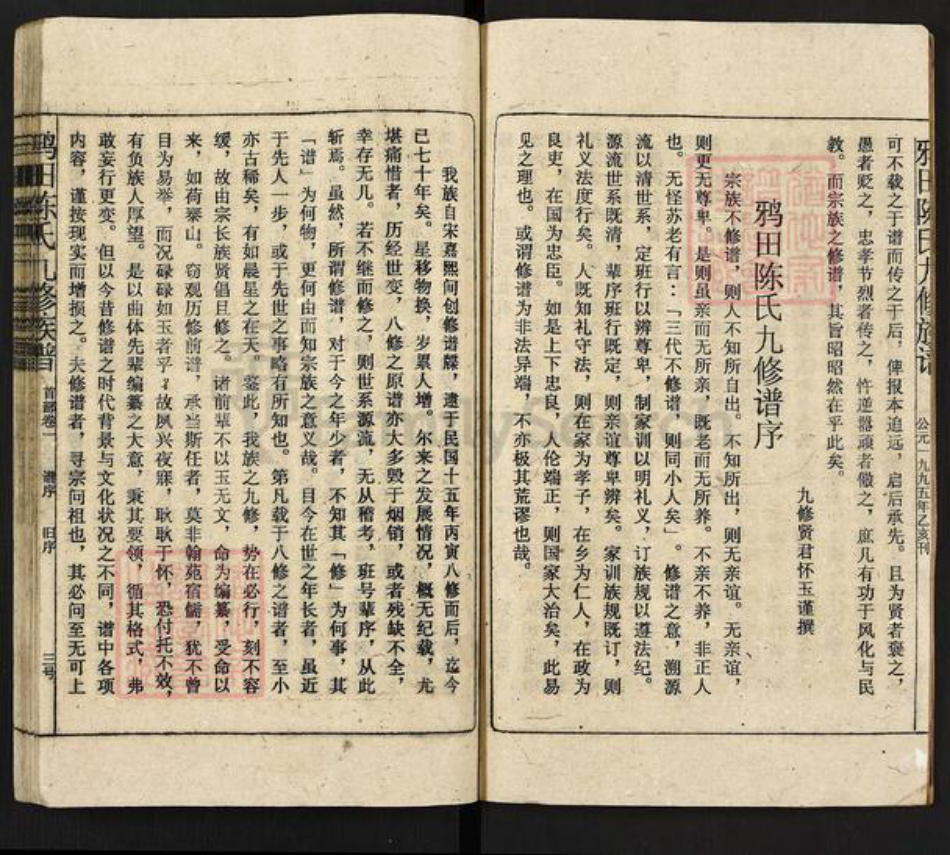 鸦田陈氏九修族谱
公元一九九五年乙亥刊
可不载之于谱而传之于后，俾报本追远，启后承先。且为贤者褒之，
愚者贬之，忠孝节烈者传之，忤逆嚚顽者儆之，庶几有功于风化与民
教。而宗族之修谱，其旨昭昭然在乎此矣。
九修贤君怀玉谨撰
鸦田陈氏九修谱序
宗族不修谱，则人不知所自出。不知所出，则无亲谊。无亲谊，
则更无尊卑。是则虽亲而无所亲，既老而无所养。不亲不养，非正人
也。无怪苏老有言：「三代不修谱，则同小人矣」。修谱之意，溯源
流以清世系，定班行以辨尊卑，制家训以明礼义，订族规以遵法纪。
源流世系既清，辈序班行既定，则亲谊尊卑辨矣。家训族规既订，则
礼义法度行矣。人既知礼守法，则在家为孝子，在乡为仁人，在政为
良吏，在国为忠臣。如是上下忠良，人伦端正，则国家大治矣，此易
见之理也。或谓修谱为非法异端，不亦极其荒谬也哉。
我族自宋嘉熙间创修谱牒，逮于民国十五年丙寅八修而后，迄今
已七十年矣。星移物换，岁累人增。尔来之发展情况，概无纪载，尤
堪痛惜者，历经世变，八修之原谱亦大多毁于烟销，或者残缺不全，
幸存无几。若不继而修之，则世系源流，无从稽考，班号辈序，从此
斩焉。虽然，所谓修谱，对于今之年少者，不知其「修」为何事，其
「谱」为何物，更何由而知宗族之意义哉。目今在世之年长者，虽近
于先人一步，或于先世之事略有所知也。第凡载于八修之谱者，至小
亦古稀矣，有如晨星之在天。鉴此，我族之九修，势在必行，刻不容
缓，故由宗长族贤倡且修之。诸前辈不以玉无文，命为编纂，受命以
来，如荷泰山。窃观历修前谱，承当斯任者，莫非翰苑宿儒，犹不曾
目为易举，而况碌碌如玉者乎？故夙兴夜寐，耿耿于怀，恐付托不效，
有负族人厚望。是以曲体先辈编纂之大意，秉其要领，循其格式，弗
敢妄行更变。但以今昔修谱之时代背景与文化状况之不同，谱中各项
内容，谨按现实而增损之。夫修谱者，寻宗问祖也，其必问至无可上
鸦田陈氏九修族谱
首部卷一
谱序
旧序
三号